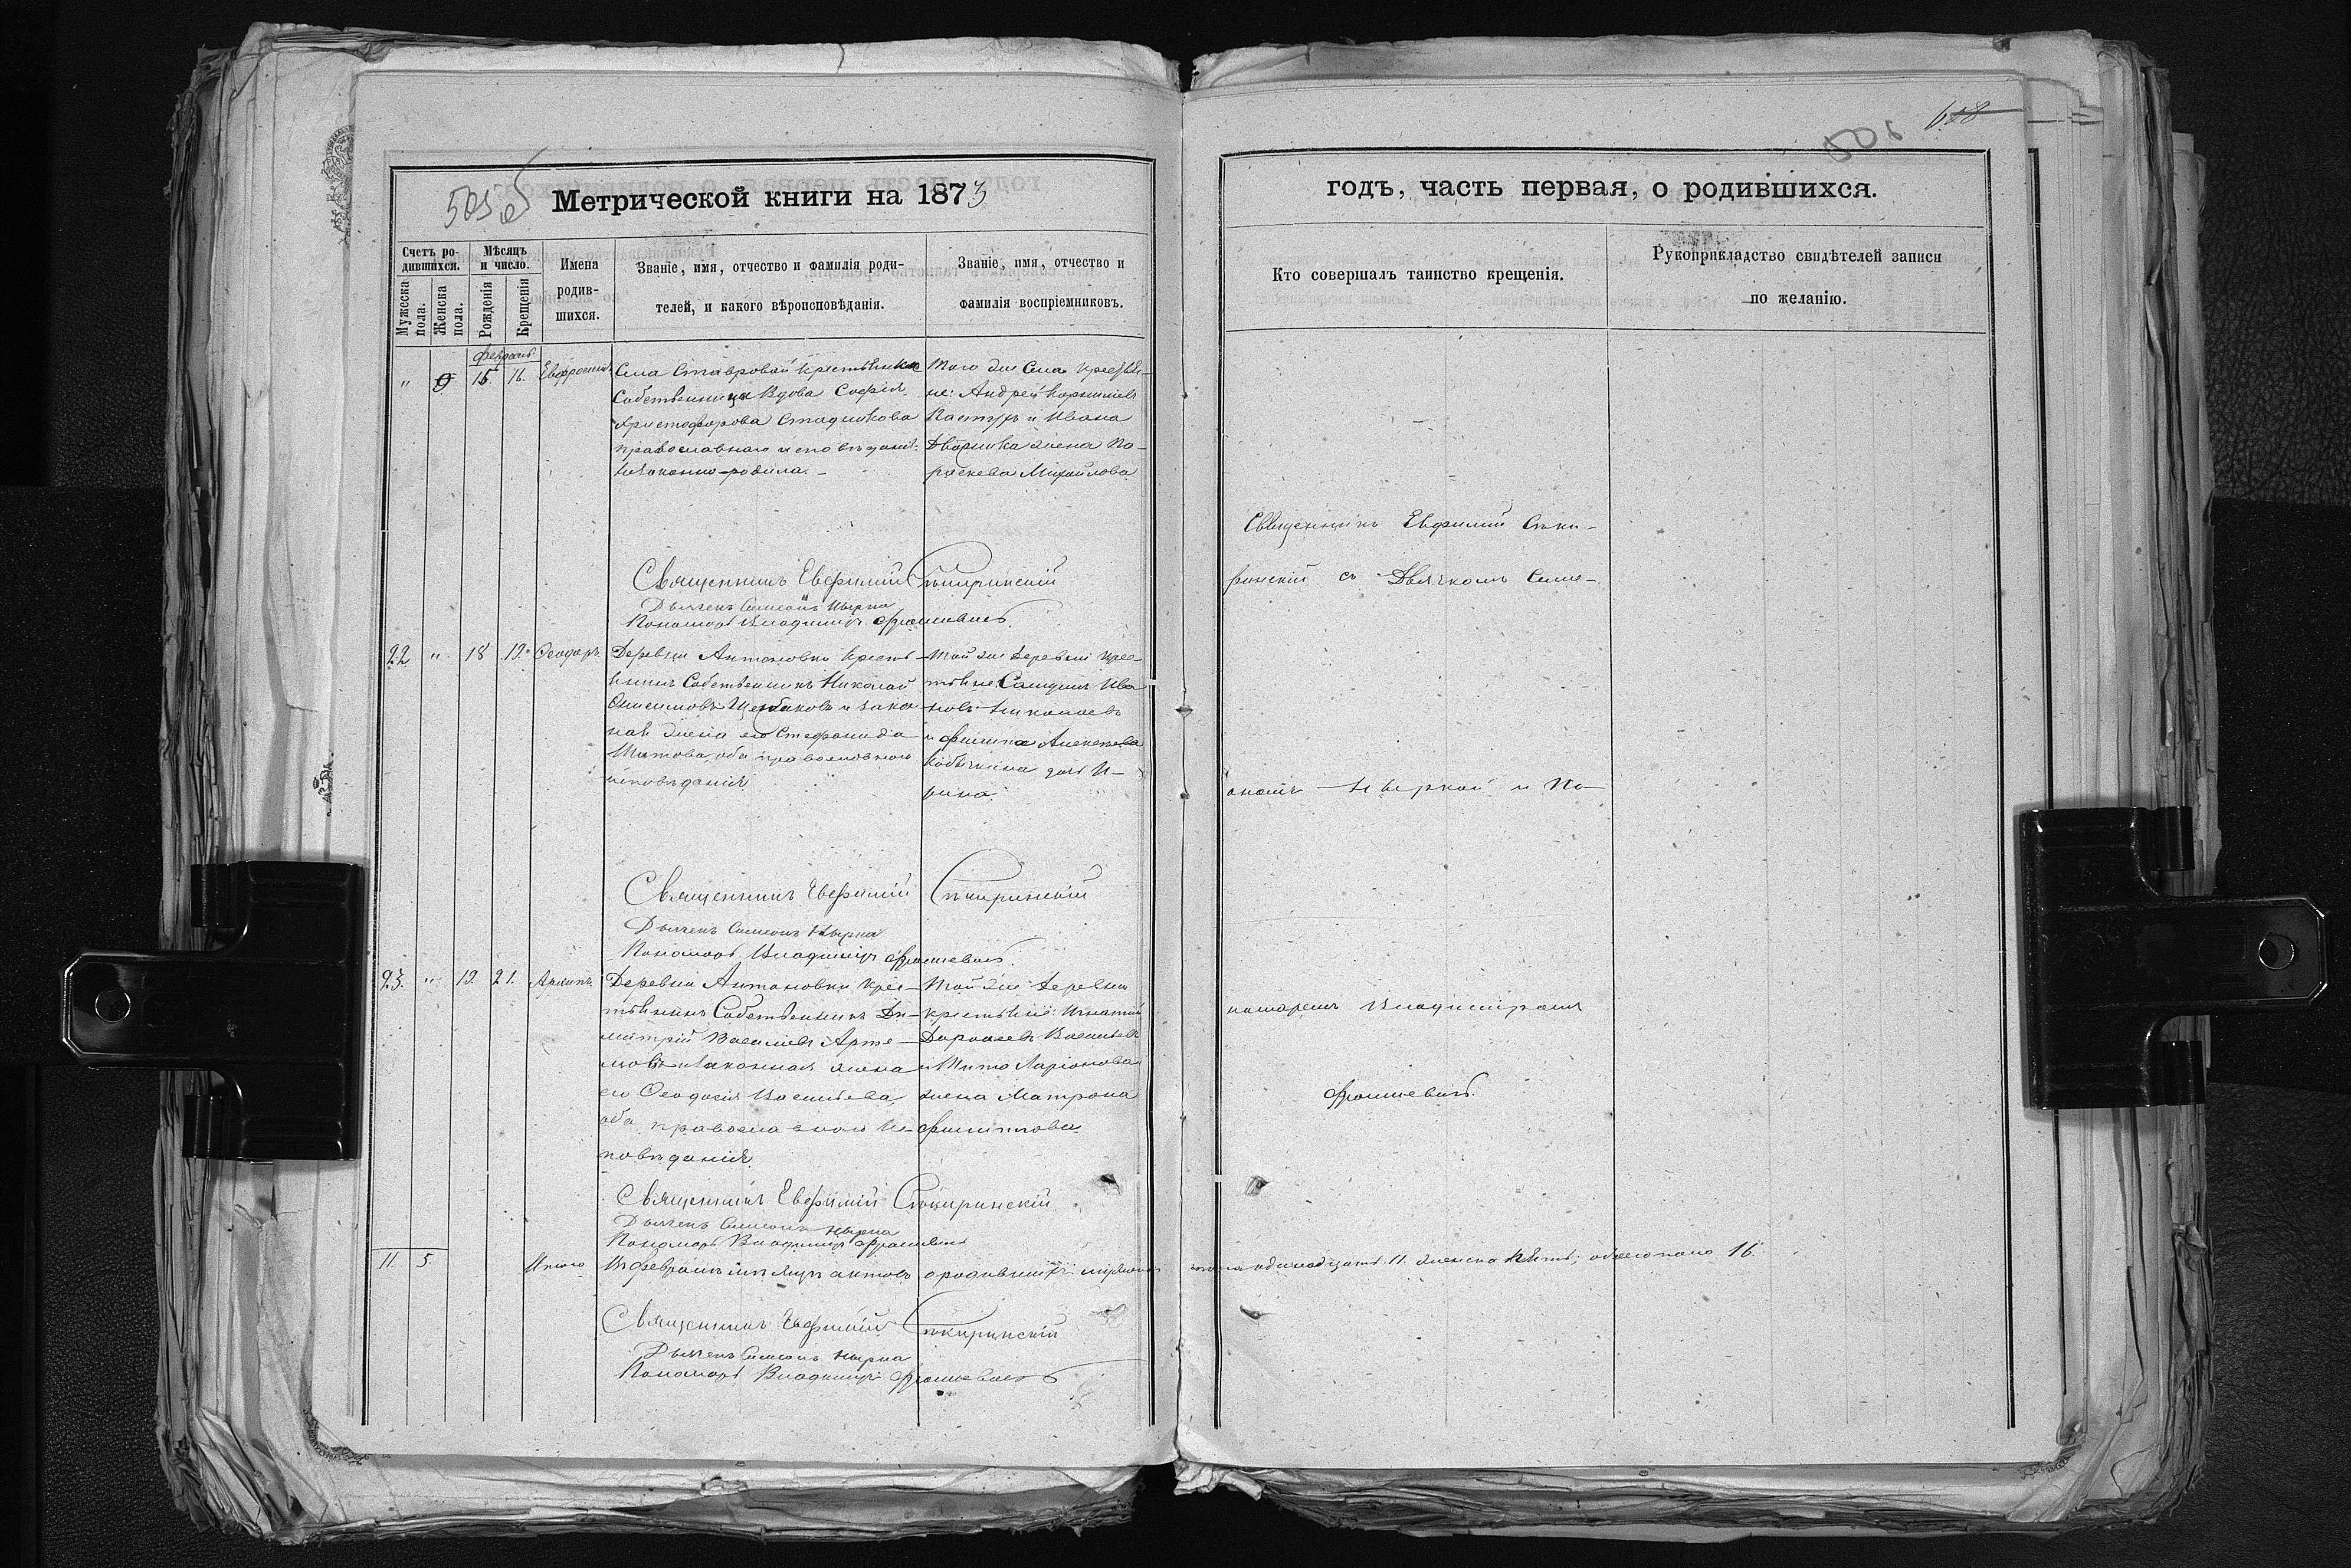 505 об
Метрической книги на 1873
Счетъ ро-
дившихся.
Мѣсяцъ
и число.
Мужеска
пола.
Женска
пола.
Рожденія
Крещенія
Имена
родив-
шихся.
Званіе, имя, отчество и фамилія роди-
телей, и какого вѣроисповѣданія.
Званіе, имя, отчество и
фамилія воспріемниковъ.
февраль
" 9 15 16. Евфросинія
Села Ставровой крестьянка
Собственница Вдова Софія
Христофорова Стадникова
православнаго исповѣданія
незаконно-родила.
Того же Села крестья-
не: Андрей Корниліевъ
Пастухъ и Ивана
Дворника жена Па-
раскева Михайлова
Священникъ Евфимій Сѣкиринскій
Дьячекъ Симеонъ Нырка
Пономарь Владиміръ Фрашевать
22 " 18 19 Ѳеодоръ
Деревни Антоновки кресть-
янинъ Собственникъ Николай
Онисимовъ Щербаковъ и закон-
ная жена его Стефанида
Титова, оба православнаго
исповѣданія
Той же деревни крес-
тьяне: Самуилъ Ива
новъ Николаевъ
и Филипа Алексеева
Кобычкина дочь И-
рина
Священникъ Евфимій Сѣкиринскій
Дьячекъ Симеонъ Нырка
Пономарь Владиміръ Фрашевать
23. " 19. 21. Архипъ
Деревни Антоновки крес-
тьянинъ Собственникъ Ди-
митрій Василіевъ Арте-
мовъ и законная жена
его Ѳеодосія Васильева,
оба православнаго ис-
повѣданія
Той же деревни
крестьяне: Игнатій
Дороѳеевъ Васильевъ
и Тита Ларіонова
жена Матрона
Филиппова
Священникъ Евфимій Сѣкиринскій
Дьячекъ Симеонъ Нырка
Пономарь Владиміръ Фрашевать
11. 5. Итого Въ февралѣ мѣсяцѣ актовъ о родившихся мужеска
Священникъ Евфимій Сѣкиринскій
Дьячекъ Симеонъ Нырка
Пономарь Владиміръ Фрашевать
618
506
годъ, часть первая, о родившихся.
Кто совершалъ таинство крещенія.
Рукоприкладство свидѣтелей записи
по желанію.
Священникъ Евфимій Сѣки-
ринскій съ Дьячкомъ Симе-
ономъ Ныркой и По-
номаремъ Владиміромъ
Фрашевать.
пола одинадцать 11. женска пять, обоего пола 16.